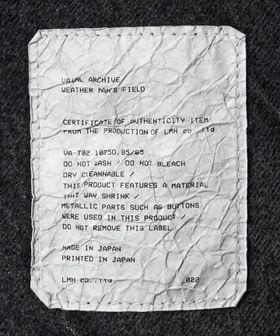 ARCHIVE
WEATHER MAN'S FIELD
CERTIFICATE OF AUTHENTICITY ITEM
FROM THE PRODUCTION OF LMH co.,ltd
DO NOT WASH / DO NOT BLEACH
DRY CLEANNABLE /
THIS PRODUCT FEATURES A MATERIAL
THAT WAY SHRINK /
METALLIC PARTS SUCH AS BUTTONS
WERE USED IN THIS PRODUCT /
DO NOT REMOVE THIS LABEL
MADE IN JAPAN
PRINTED IN JAPAN
LMH co.,ltd